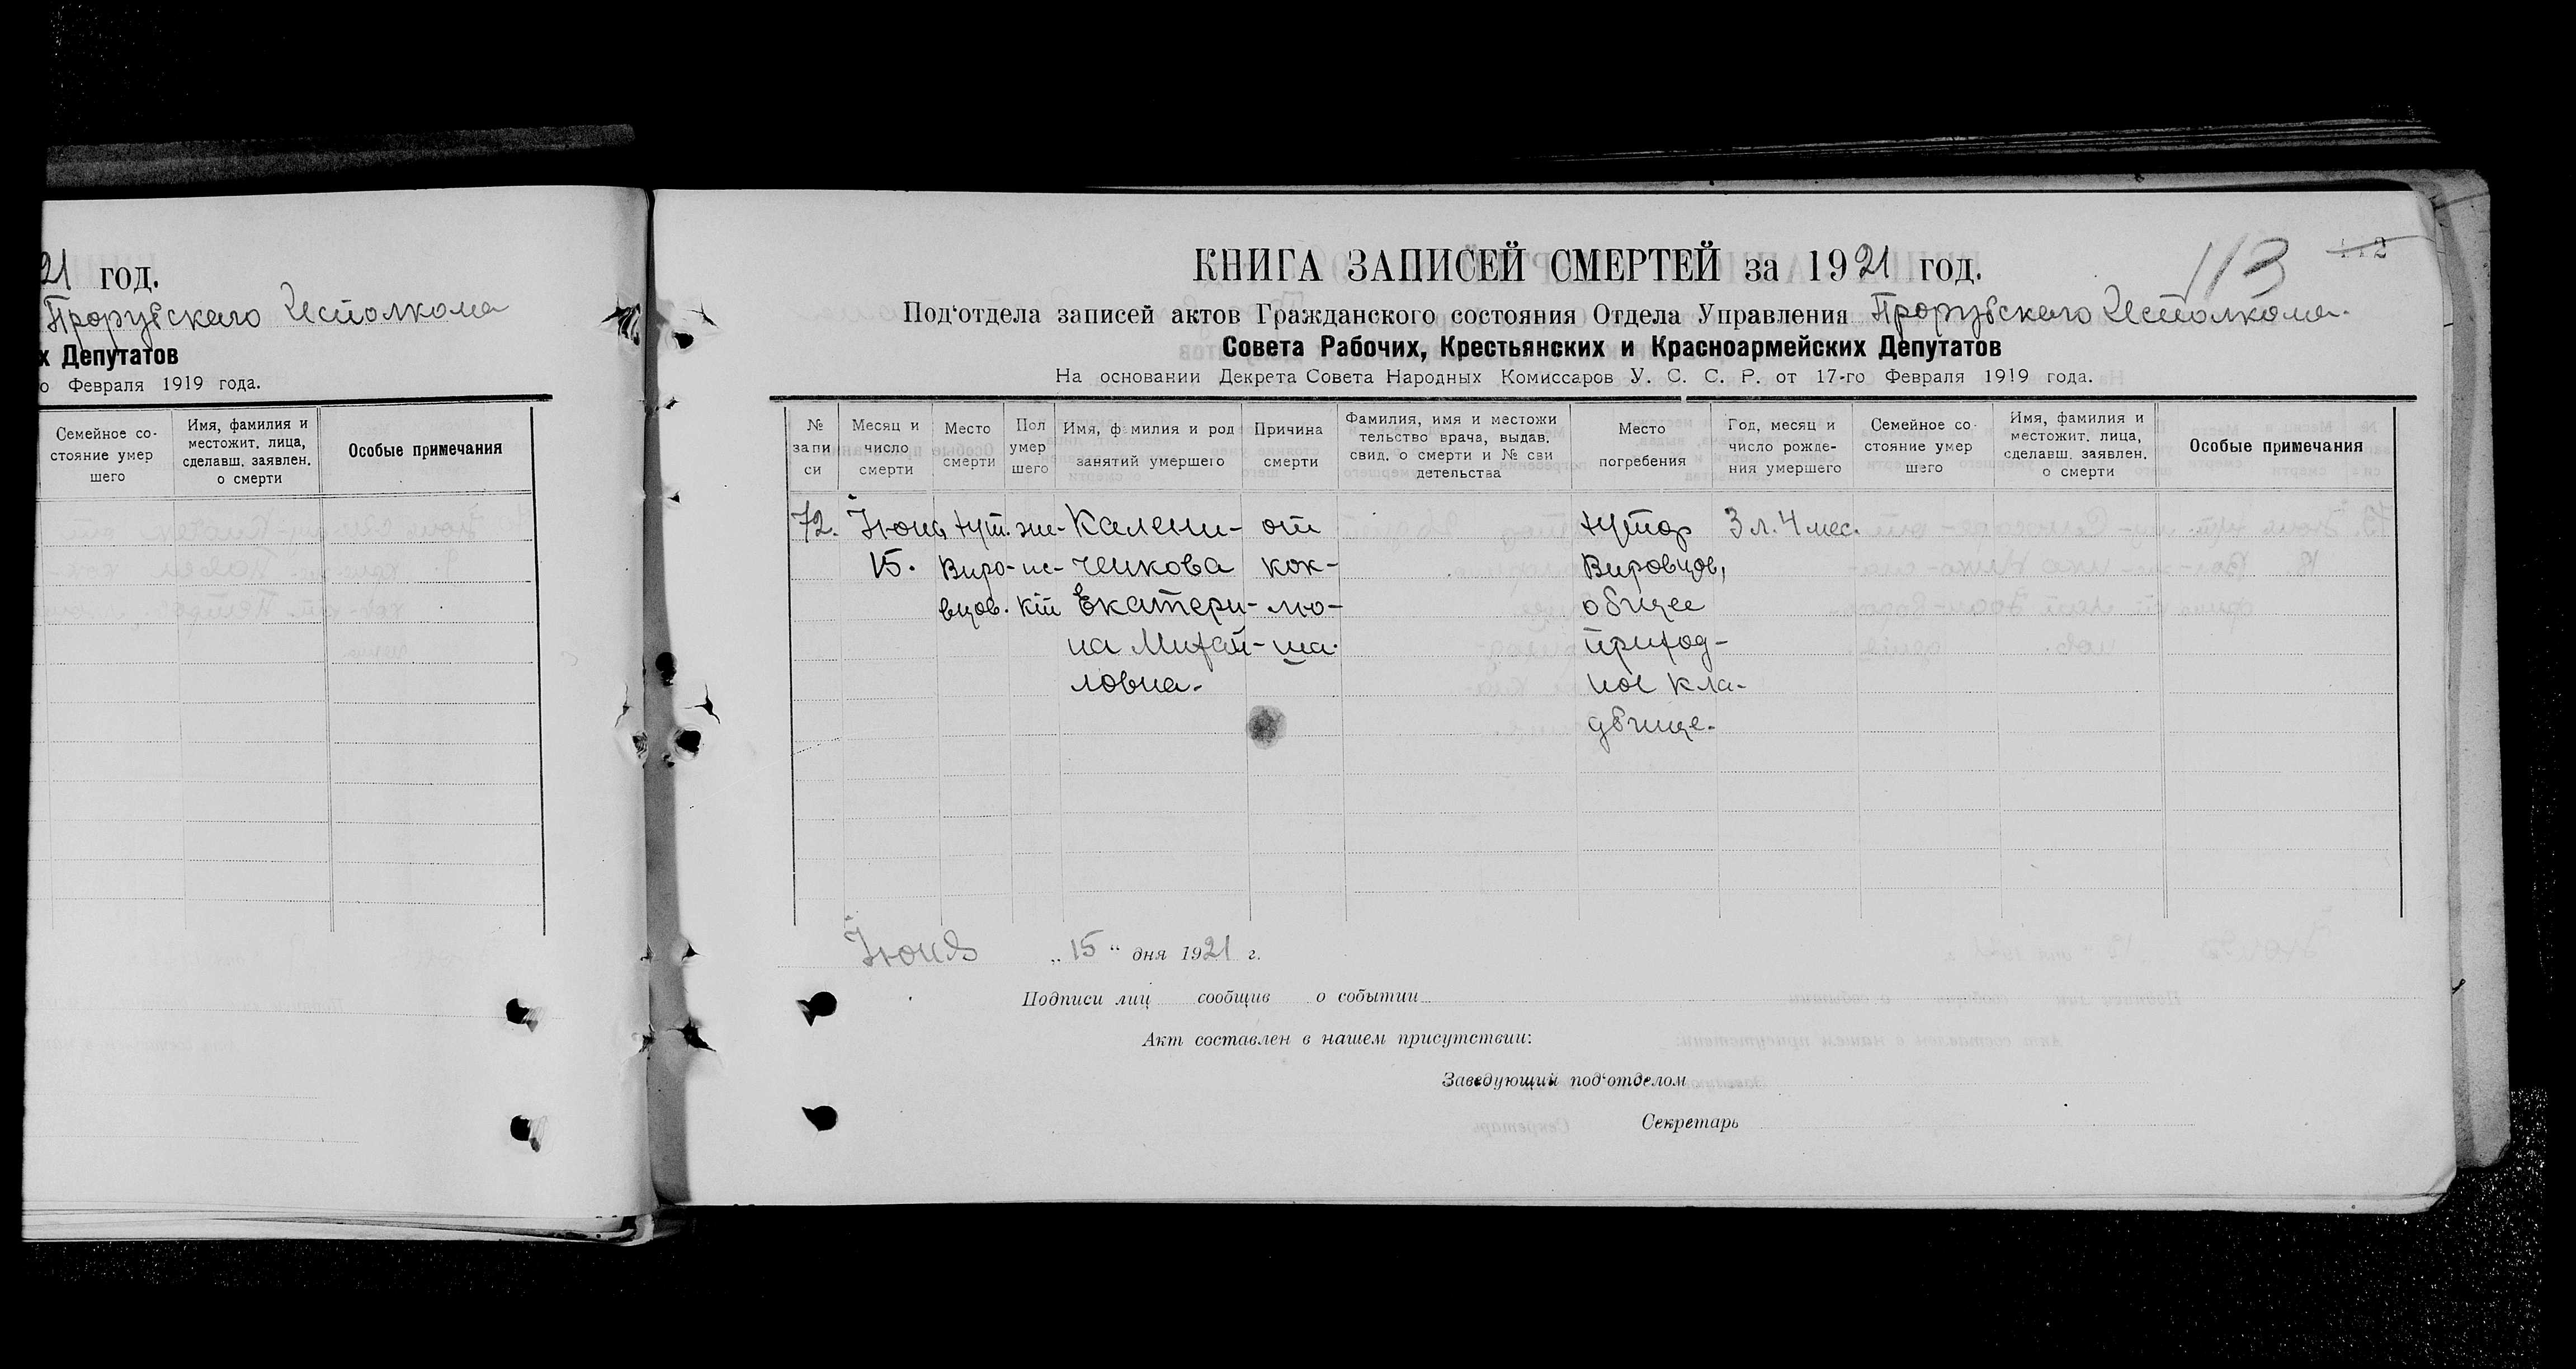 21 год.
Прорубскаго Исполкома
х Депутатов
о Февраля 1919 года.
Семейное со-
стояние умер
шего
Имя, фамилия и
местожит. лица,
сделавш. заявлен.
о смерти
Особые примечания
113
2
КНИГА ЗАПИСЕЙ СМЕРТЕЙ за 1921 год.
Под‘отдела записей актов Гражданского состояния Отдела Управления Прорубскаго Исполкома.
Совета Рабочих, Крестьянских и Красноармейских Депутатов
На основании Декрета Совета Народных Комиссаров У. С. С. Р. от 17-го Февраля 1919 года.
№
запи
си
Месяц и
число
смерти
Место
смерти
Пол
умер
шего
Имя, фамилия и род
занятий умершего
Причина
смерти
Фамилия, имя и местожи
тельство врача, выдав.
свид. о смерти и № сви
детельства
Место
погребения
Год, месяц и
число рожде-
ния умершего
Семейное со-
стояние умер
шего
Имя, фамилия и
местожит. лица,
сделавш. заявлен.
о смерти
Особые примечания
72.
Іюнь
15.
хут.
Виро-
вцов.
же-
нс-
кій
Калени-
ченкова
Екатери-
на Михай-
ловна.
от
кок-
лю-
ша.
хутор
Вировцов,
общее
приход-
ное кла-
дбище.
3 л. 4 мес.
Іюня „15“ дня 1921 г.
Подписи лиц сообщив о событии
Акт составлен в нашем присутствии:
Заведующий под‘отделом
Секретарь